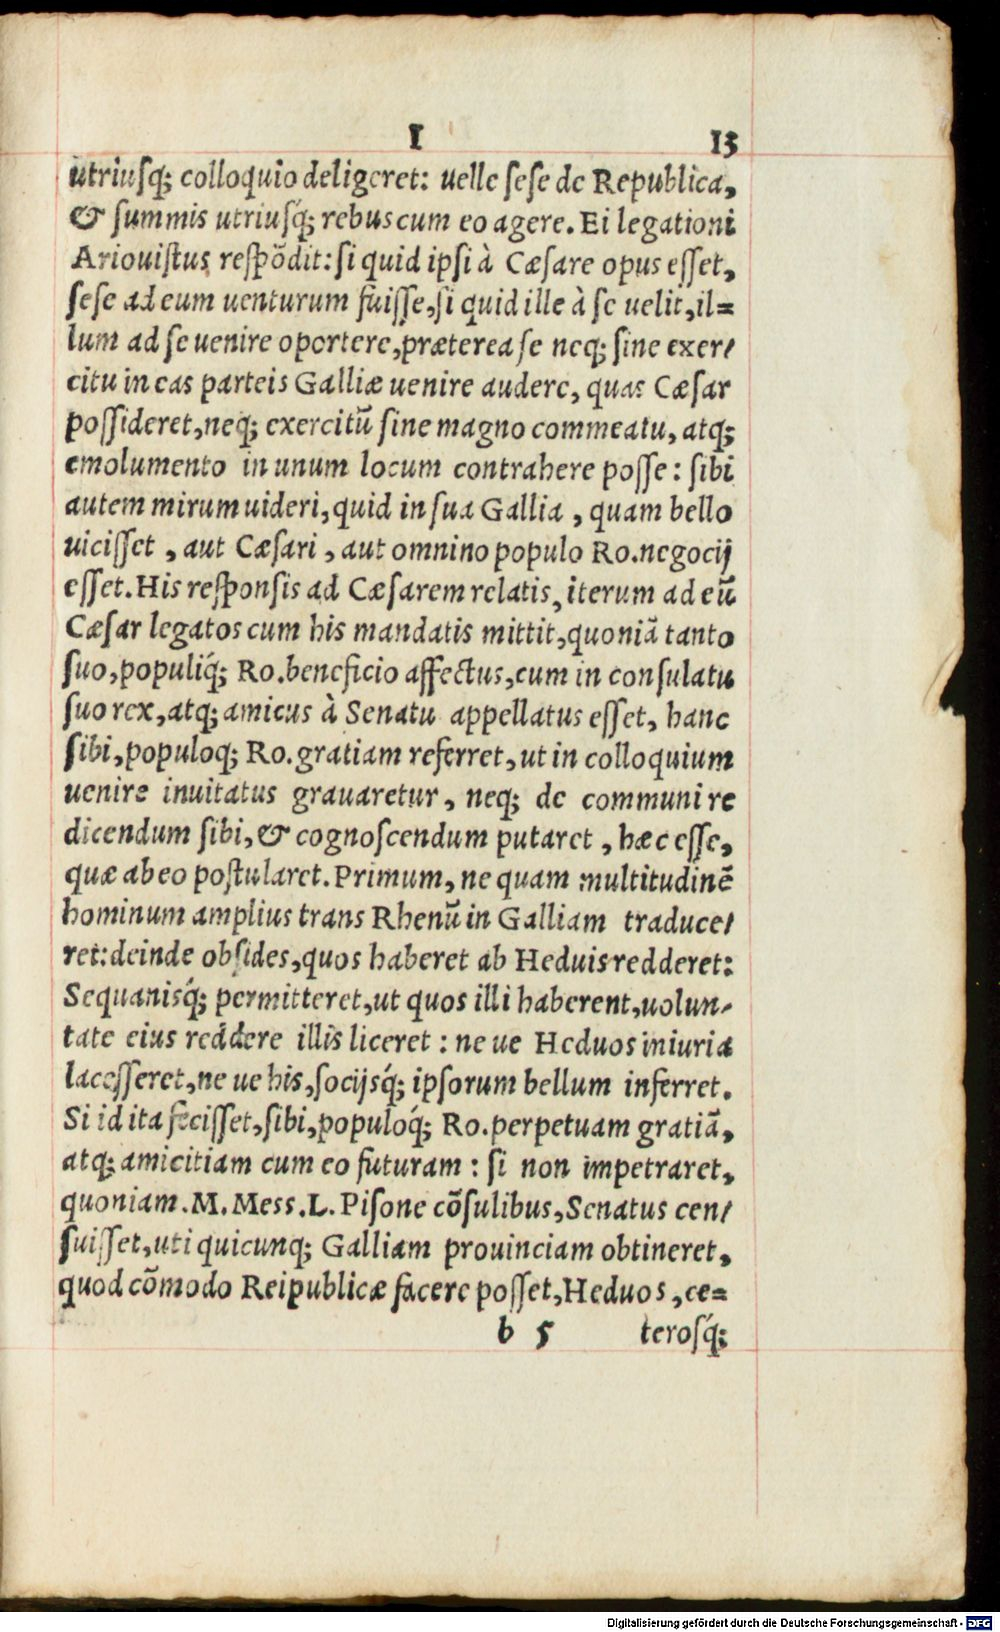 I 13
utriusq; colloquio deligeret: uelle sese de Republica,
& summis utriusq́; rebus cum eo agere. Ei legationi
Ariouistus respõdit: si quid ipsi à Cæsare opus esset,
sese ad eum uenturum fuisse, si quid ille à se uelit, il=
lum ad se uenire oportere, præterea se neq; sine exer/
citu in eas parteis Galliæ uenire audere, quas Cæsar
possideret, neq; exercitũ sine magno commeatu, atq;
emolumento in unum locum contrahere posse: sibi
autem mirum uideri, quid in sua Gallia, quam bello
uicisset, aut Cæsari, aut omnino populo Ro. negocij
esset. His responsis ad Cæsarem relatis, iterum ad eũ
Cæsar legatos cum his mandatis mittit, quoniã tanto
suo, populiq́; Ro. beneficio affectus, cum in consulatu
suo rex, atq; amicus à Senatu appellatus esset, hanc
sibi, populoq; Ro. gratiam referret, ut in colloquium
uenire inuitatus grauaretur, neq; de communi re
dicendum sibi, & cognoscendum putaret, hæc esse,
quæ ab eo postularet. Primum, ne quam multitudinẽ
hominum amplius trans Rhenũ in Galliam traduce/
ret: deinde obsides, quos haberet ab Heduis redderet:
Sequanisq́; permitteret, ut quos illi haberent, uolun/
tate eius reddere illis liceret: ne ue Heduos iniuria
lacesseret, ne ue his, socijsq́; ipsorum bellum inferret.
Si id ita fecisset, sibi, populoq́; Ro. perpetuam gratiã,
atq; amicitiam cum eo futuram: si non impetraret,
quoniam. M. Mess. L. Pisone cõsulibus, Senatus cen/
suisset, uti quicunq; Galliam prouinciam obtineret,
quod cõmodo Reipublicæ facere posset, Heduos, ce=
b 5 terosq́;
Digitalisierung gefördert durch die Deutsche Forschungsgemeinschaft - DFG